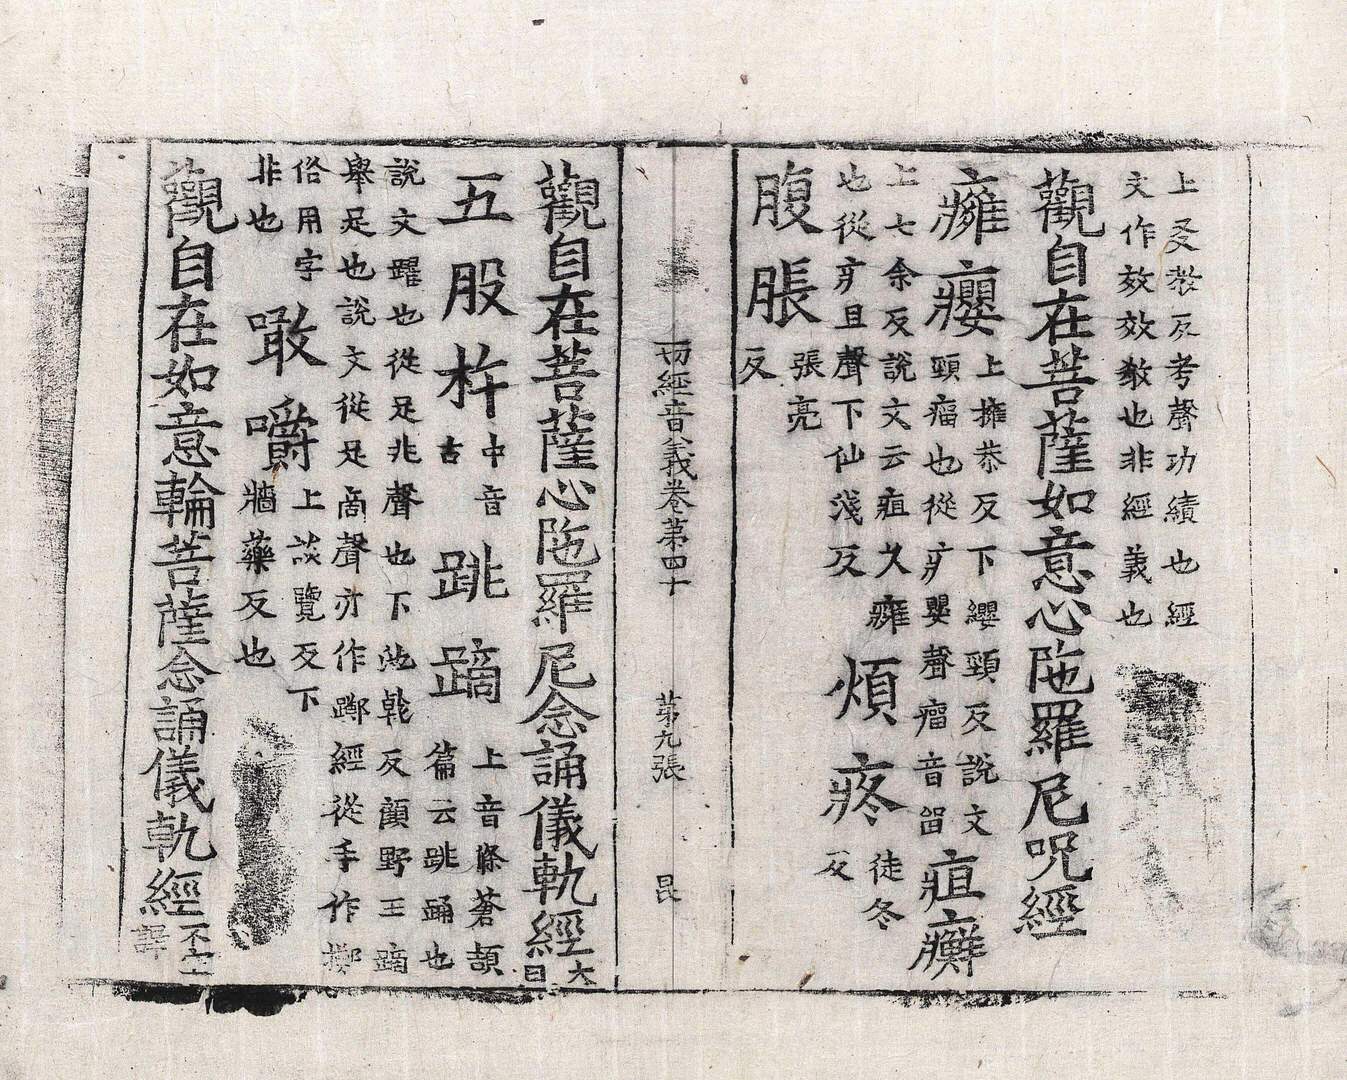 上爻教反考聲功績也經
文作效效教也非經義也
觀自在菩薩如意心陁羅尼呪經
癰癭
上擁恭反下纓頸反說文
頸瘤也從疒嬰聲瘤音留
疽癬
上七余反說文云疽久癰
也從疒且聲下仙淺反
煩疼
徒冬
反
腹脹
張亮
反
一切經音義卷第四十 第九張 昆
觀自在菩薩心陁羅尼念誦儀軌經
五股杵
中音
古
跳躑
上音條蒼頡
篇云跳踊也
說文躍也從足兆聲也下
反顧野王躑
舉足也說文從足啇聲亦作躑經從手作擲
俗用字
非也
噉嚼
上談覽反下
牆藥反也
觀自在如意輪菩薩念誦儀軌經